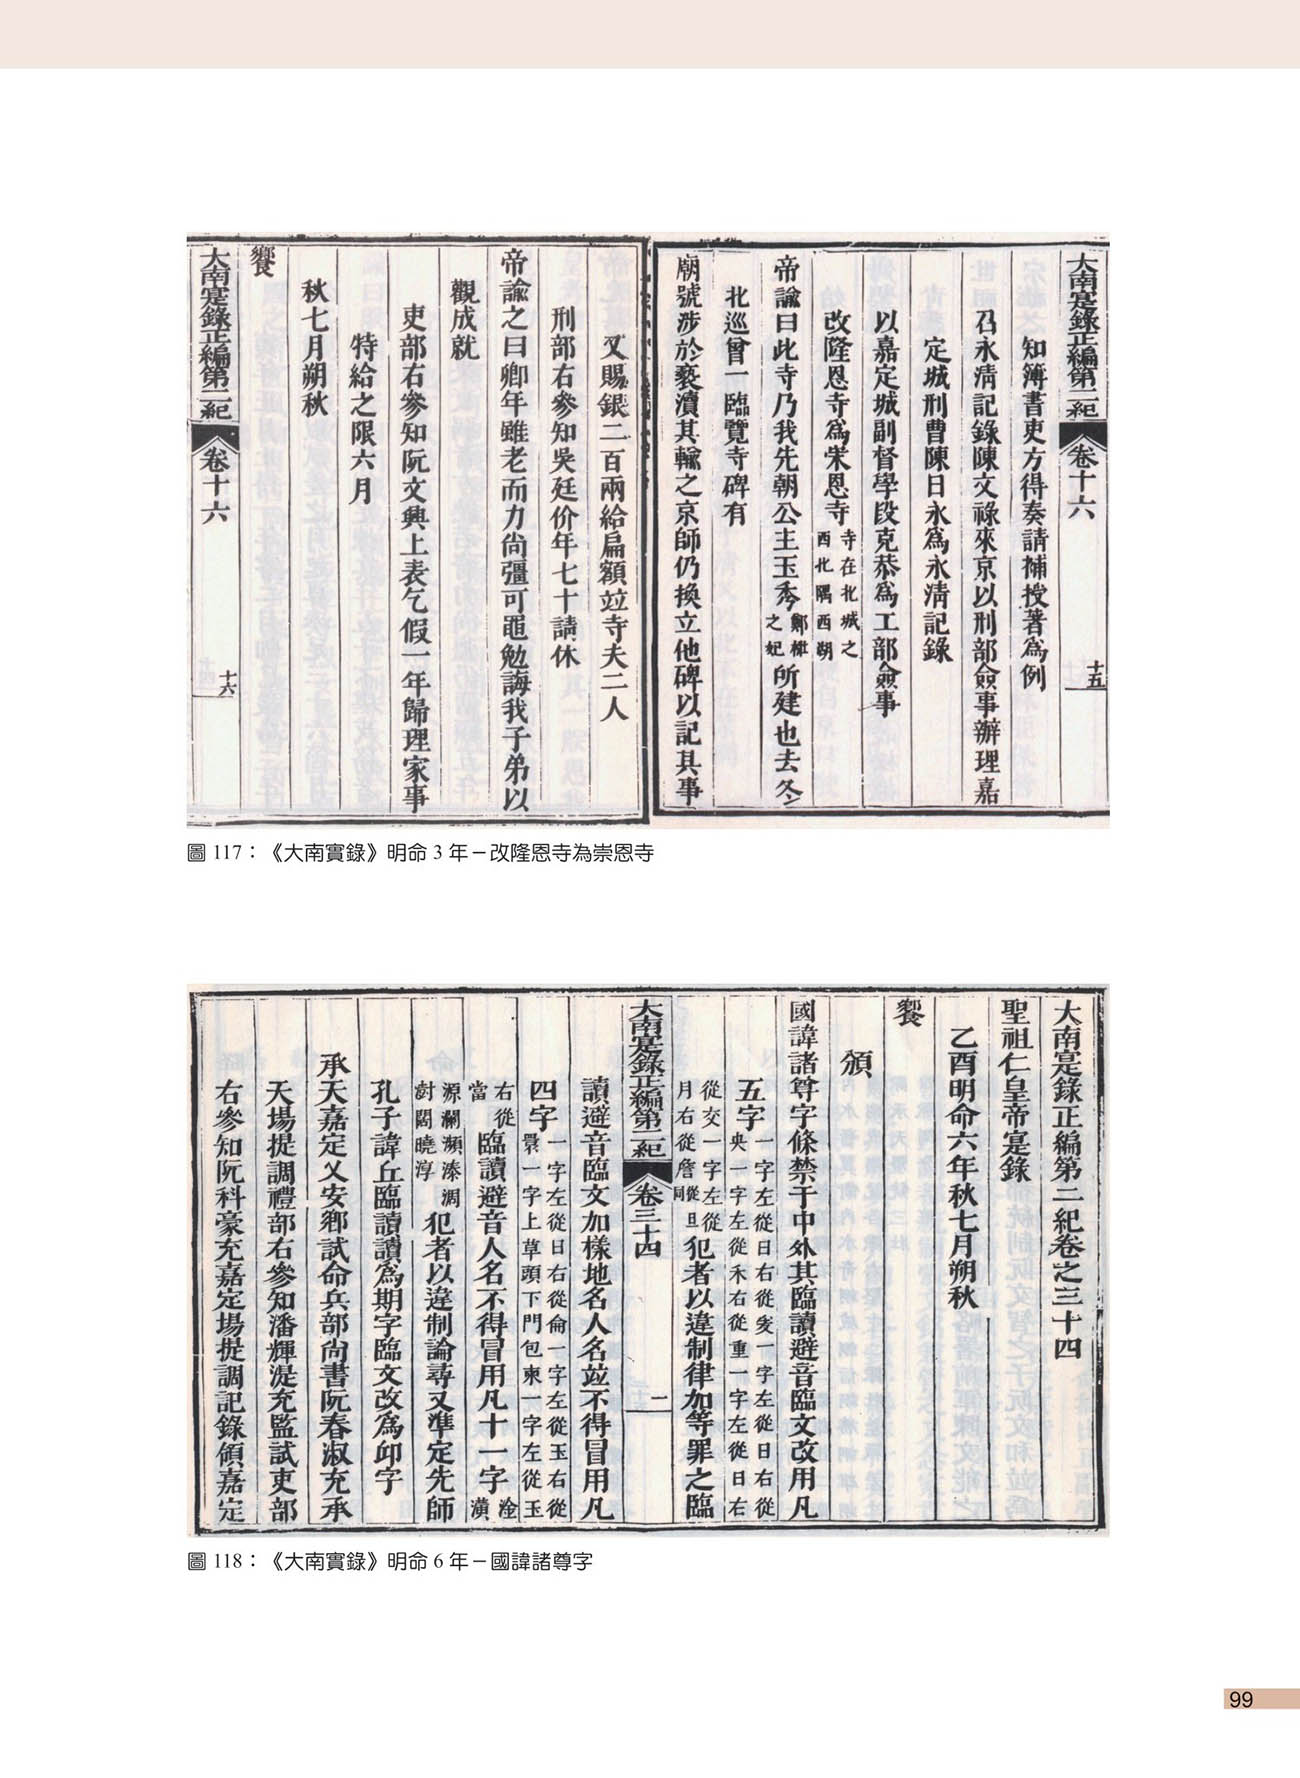 大南寔錄正編第二紀 卷十六 十五
知簿書吏方得奏請補授著爲例
召永淸記錄陳文祿來京以刑部僉事辦理嘉
定城刑曹陳日永爲永淸記錄
以嘉定城副督學段克恭爲工部僉事
改隆恩寺爲崇恩寺寺在北城之西北隅西朔
帝諭曰此寺乃我先朝公主玉秀鄭樁之妃所建也去冬
北巡曾一臨覽寺碑有
廟號涉於褻瀆其輸之京師仍換立他碑以記其事
又賜銀二百兩給扁額竝寺夫二人
刑部右參知吳廷价年七十請休
帝諭之曰卿年雖老而力尙彊可黽勉誨我子弟以
觀成就
吏部右參知阮文興上表乞假一年歸理家事
特給之限六月
秋七月朔秋
饗
大南寔錄正編第二紀 卷十六 十六
圖 117：《大南實錄》明命 3 年－改隆恩寺為崇恩寺
大南寔錄正編第二紀卷之三十四
聖祖仁皇帝寔錄
乙酉明命六年秋七月朔秋
饗
頒
國諱諸尊字條禁于中外其臨讀避音臨文改用凡
五字一字左從日右從㚇一字左從日右從央一字左從禾右從重一字左從日右
從交一字左從月右從詹從旦同犯者以違制律加等罪之臨
大南寔錄正編第二紀 卷三十四 一
讀避音臨文加樣地名人名竝不得冒用凡
四字一字左從日右從侖一字左從玉右從睘一字上草頭下門包柬一字左從玉
右從當臨讀避音人名不得冒用凡十一字淦潢
源瀾瀕溱凋澍闊曉淳犯者以違制論尋又準定先師
孔子諱丘臨讀讀爲期字臨文改爲邱字
承天嘉定乂安鄕試命兵部尙書阮春淑充承
天場提調禮部右參知潘輝湜充監試吏部
右參知阮科豪充嘉定場提調記錄領嘉定
圖 118：《大南實錄》明命 6 年－國諱諸尊字
99